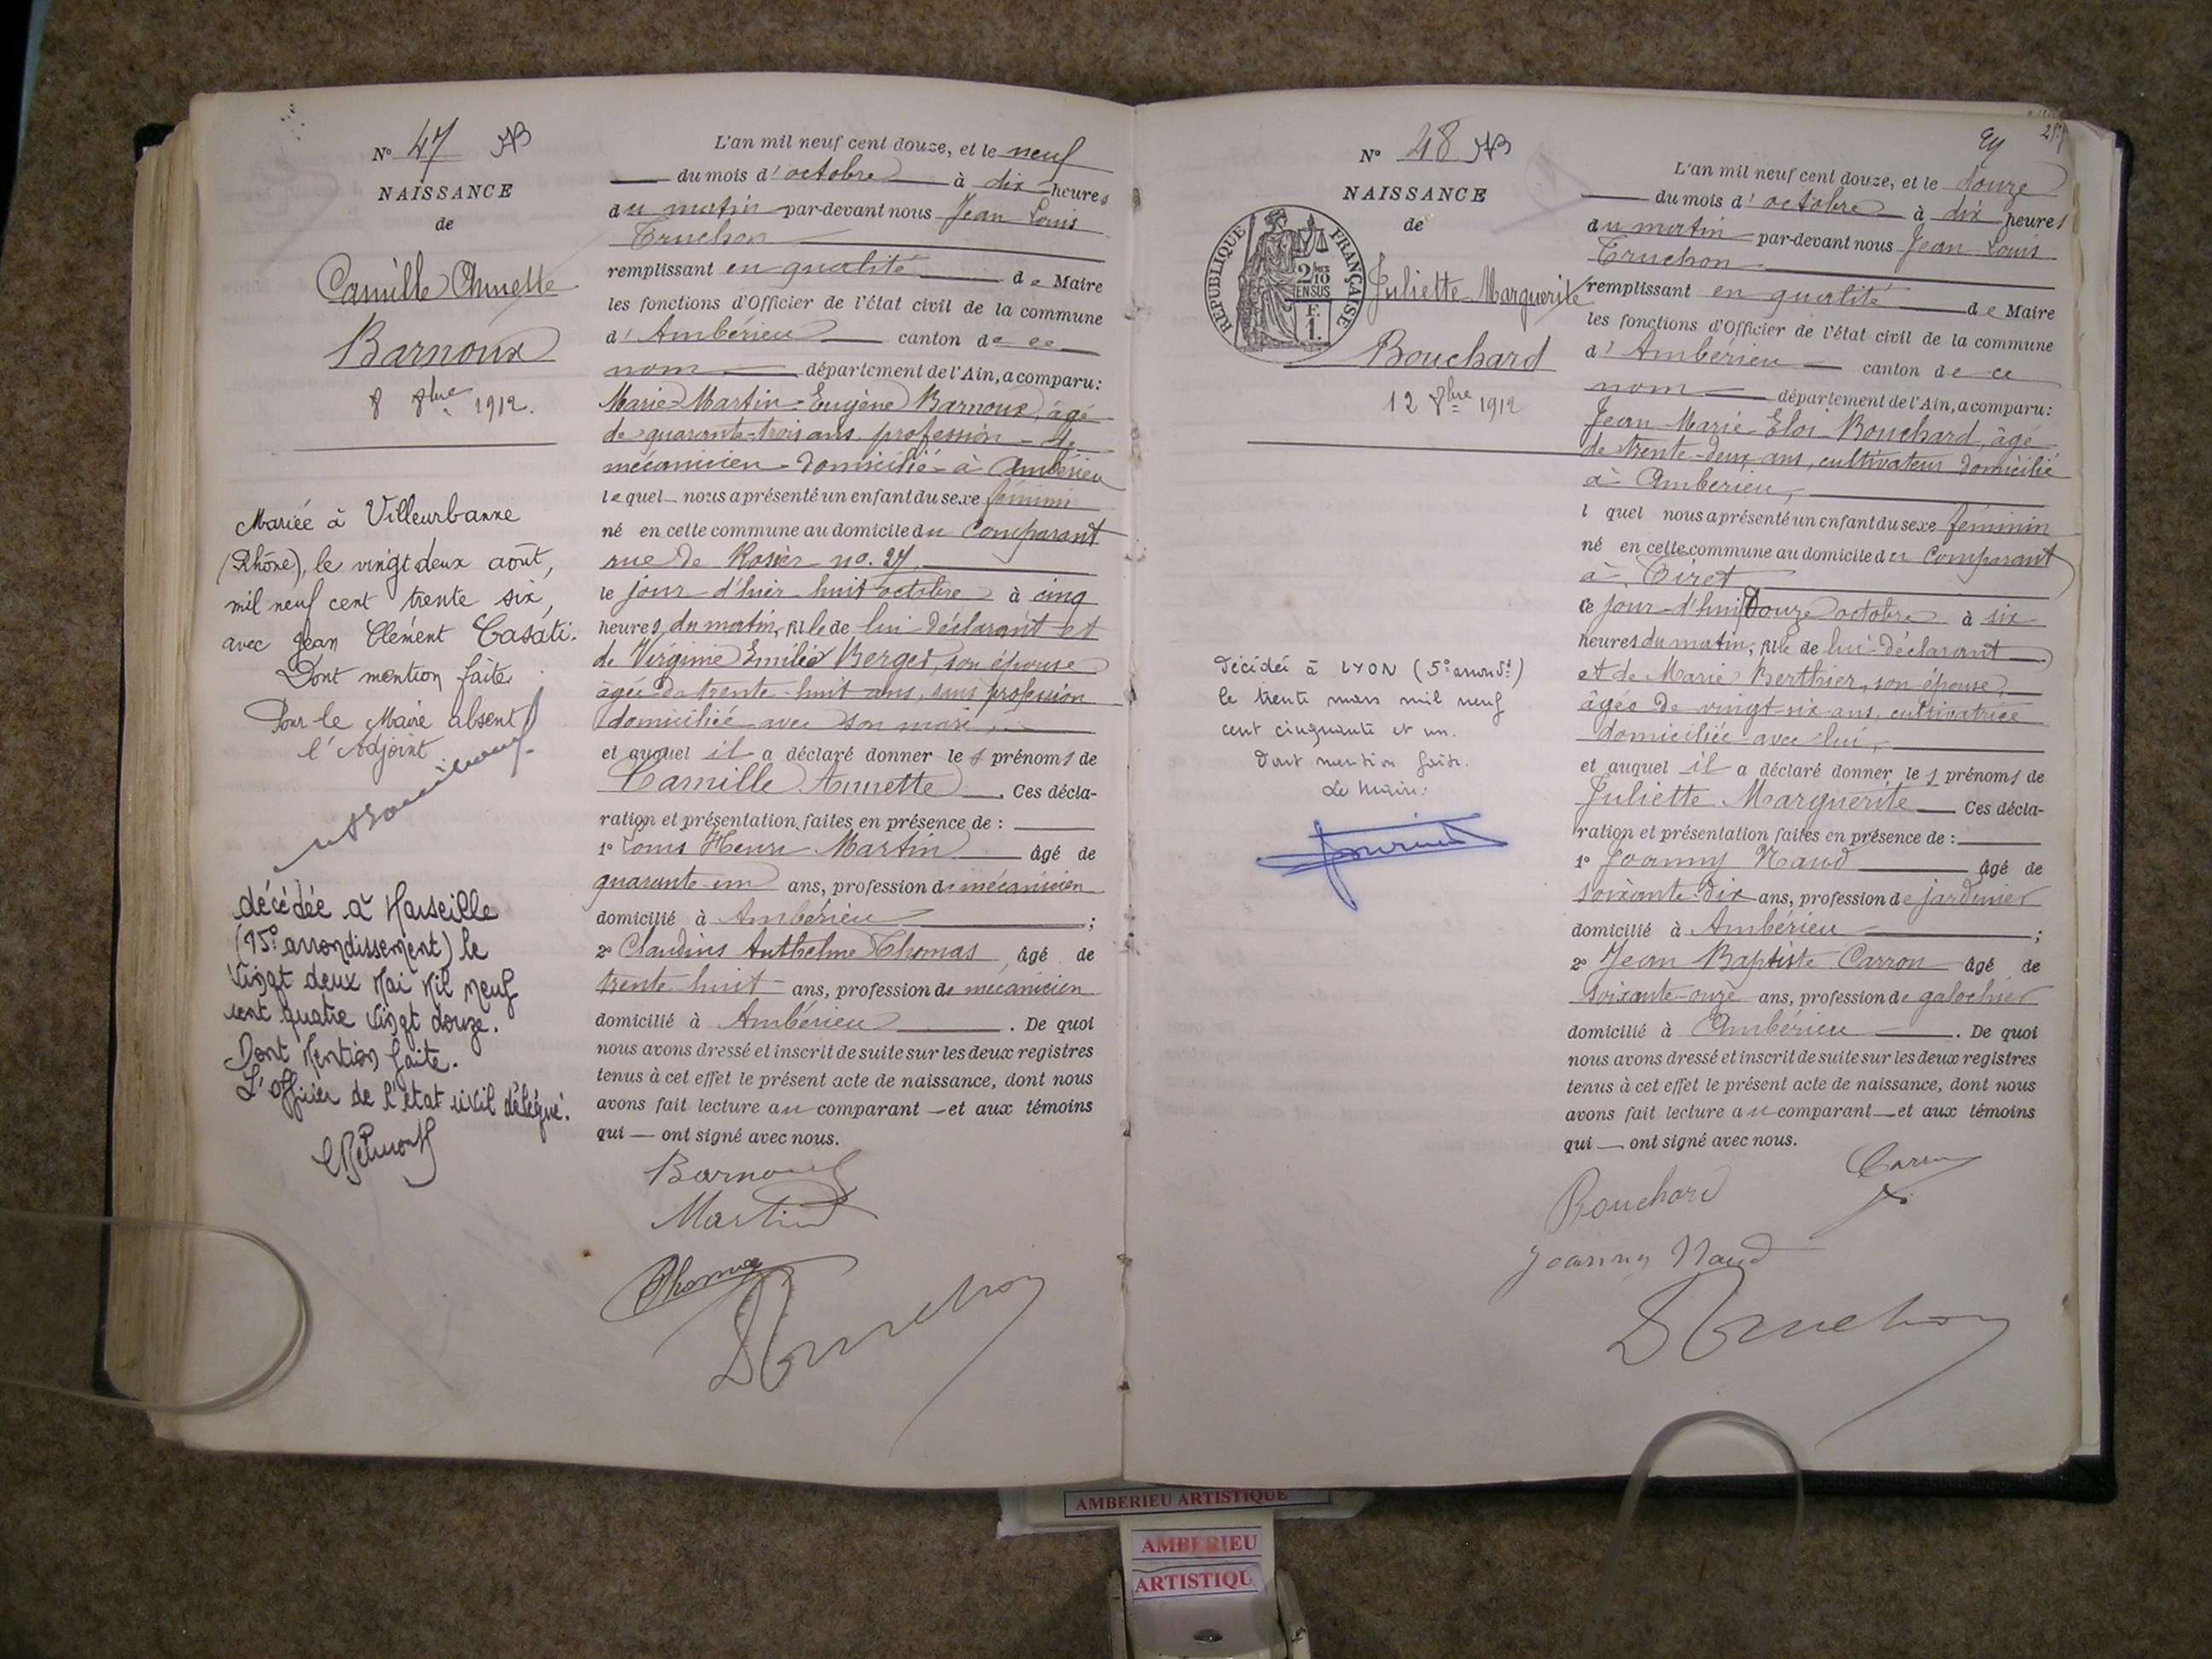 N° 47
NAISSANCE
de
Camille Annette
Barnoux
8 8bre 1912.
Mariée à Villeurbanne
(Rhône), le vingt deux août,
mil neuf cent trente six,
avec Jean Clément Casati.
Dont mention faite
Pour le Maire absent
l'Adjoint
décédée à Marseille
(15° arrondissement) le
vingt deux Mai Mil Neuf
cent quatre vingt douze.
Dont Mention faite.
L'Officier de l'état civil délégué.
L'an mil neuf cent douze, et le neuf
du mois d'octobre à dix heures
du matin par-devant nous Jean Louis
Truchon
remplissant en qualité de Maire
les fonctions d'Officier de l'état civil de la commune
d'Ambérieu canton de ce
nom département de l'Ain, a comparu :
Marie Martin Eugène Barnoux, âgé
de quarante-trois ans profession de
mécanicien domicilié à Ambérieu
lequel nous a présenté un enfant du sexe féminin
né en cette commune au domicile du Comparant
rue de Rosier no. 27.
le jour d'hier huit octobre à cinq
heures du matin, fille de lui déclarant et
de Virginie Emilie Berger, son épouse
âgée de trente huit ans, sans profession
domiciliée avec son mari,
et auquel il a déclaré donner les prénoms de
Camille Annette. Ces décla-
ration et présentation faites en présence de :
1° Louis Henri Martin âgé de
quarante un ans, profession de mécanicien
domicilié à Ambérieu ;
2° Claudius Anthelme Thomas âgé de
trente huit ans, profession de mécanicien
domicilié à Ambérieu. De quoi
nous avons dressé et inscrit de suite sur les deux registres
tenus à cet effet le présent acte de naissance, dont nous
avons fait lecture au comparant et aux témoins
qui ont signé avec nous.
Barnoux
Martin
Thomas
Truchon
N° 48
NAISSANCE
de
RÉPUBLIQUE FRANÇAISE
2/10
EN SUS
F.
1.
Juliette Marguerite
Bouchard
12 8bre 1912
Décédée à LYON (5° arrondt)
le trente mars mil neuf
cent cinquante et un.
Dont mention faite.
Le Maire:
L'an mil neuf cent douze, et le douze
du mois d'octobre à dix heures
du matin par-devant nous Jean Louis
Truchon
remplissant en qualité de Maire
les fonctions d'Officier de l'état civil de la commune
d'Ambérieu canton de ce
nom département de l'Ain, a comparu :
Jean Marie Eloi Bouchard, âgé
de trente-deux ans, cultivateur domicilié
à Ambérieu,
l quel nous a présenté un enfant du sexe féminin
né en cette commune au domicile du Comparant
à Tiret
ce jour-d'hui douze octobre à six
heures du matin, fille de lui déclarant
et de Marie Berthier, son épouse,
âgée de vingt six ans, cultivatrice
domiciliée avec lui,
et auquel il a déclaré donner les prénoms de
Juliette Marguerite Ces décla-
ration et présentation faites en présence de :
1° Joanny Naud âgé de
soixante-dix ans, profession de jardinier
domicilié à Ambérieu ;
2° Jean Baptiste Carron âgé de
soixante-onze ans, profession de galochier
domicilié à Ambérieu. De quoi
nous avons dressé et inscrit de suite sur les deux registres
tenus à cet effet le présent acte de naissance, dont nous
avons fait lecture au comparant et aux témoins
qui ont signé avec nous.
Bouchard
Joanny Naud
Truchon
AMBERIEU ARTISTIQUE
AMBERIEU
ARTISTIQU